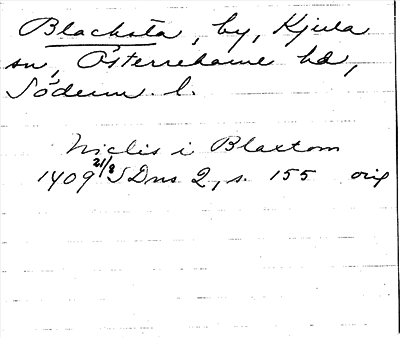 Blacksta, by, Kjula
sn, Österrekarne hd,
Söderm. l.
Niclis i Blaxtom
1409 21/8 SDns 2, s. 155 orig